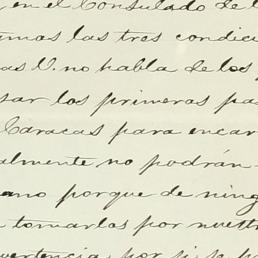 en el Consulado de l
mas las tres condici
as V. no habla de los
sar los primeros pa
Caracas para encar
almente no podrán
ano porque de ning
tomarlos por nuestr
vertencia, por si se p